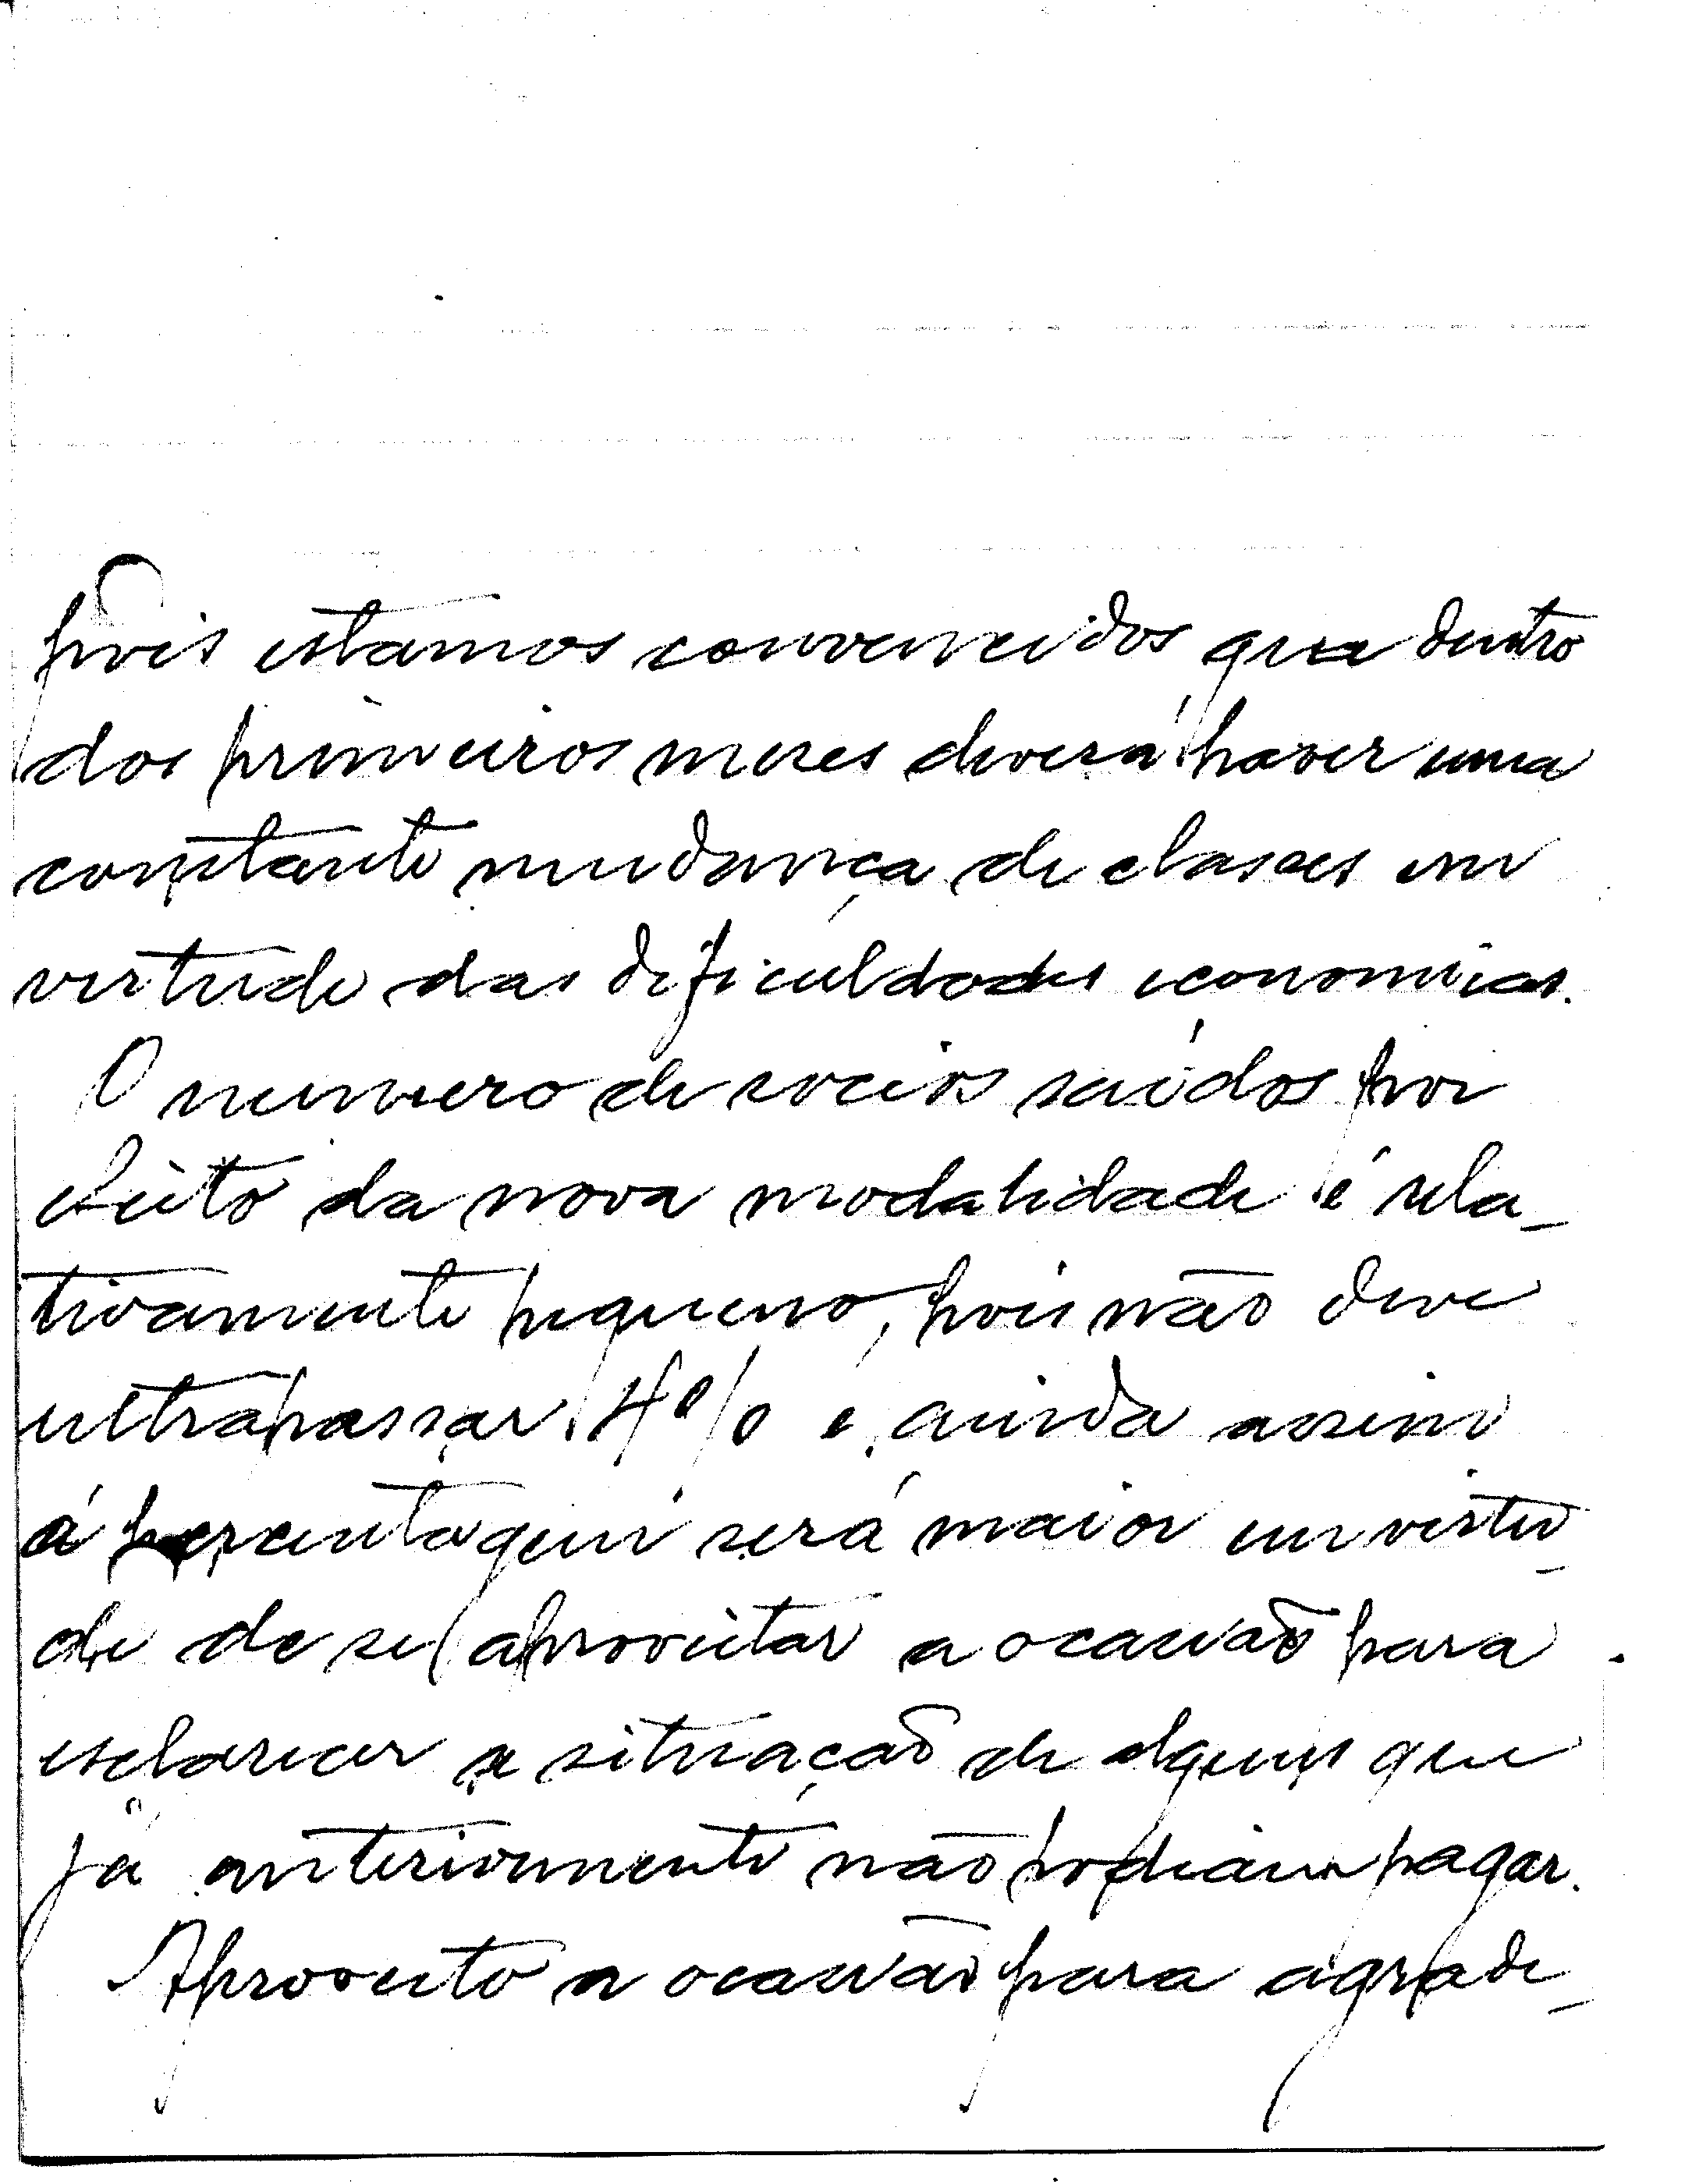 pois estamos convencidos que dentro
dos primeiros meses deverá haver uma
constante mudança de classes em
virtude das dificuldades economicas.
O numero de socios saídos por
efeito da nova modalidade é rela_
tivamente pequeno, pois não deve
ultrapassar 4% e, ainda assim
á percentagem será maior em virtu_
de de se aproveitar a ocasião para
esclarecer a situação de alguns que
já anteriormente não podiam pagar.
Aproveito a ocasião para agrade_